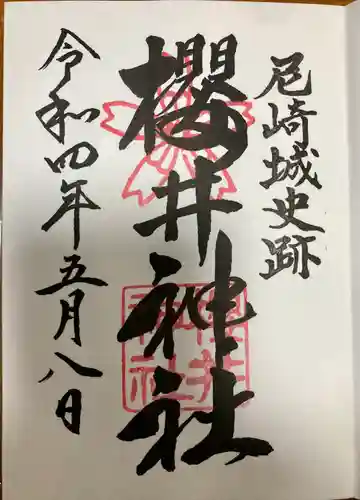 尼崎城史跡
櫻井神社
令和四年五月八日
櫻井
神社